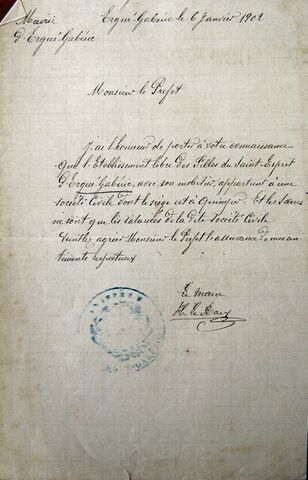 Mairie
d'Ergué-Gabéric
Ergué-Gabéric le 6 Janvier 1902
Monsieur le Préfet
J'ai l'honneur de porter à votre connaissance
que l'Etablissement libre des Filles du Saint-Esprit
d'Ergué-Gabéric, avec son mobilier, appartient à une
société Civile dont le siège est à Quimper. Et les Sœurs
ne sont que les locataires de la dite Société Civile
Veuillez agréer Monsieur le Préfet l'assurance de mes sen
timents respectueux
Le Maire
H. Le Roux